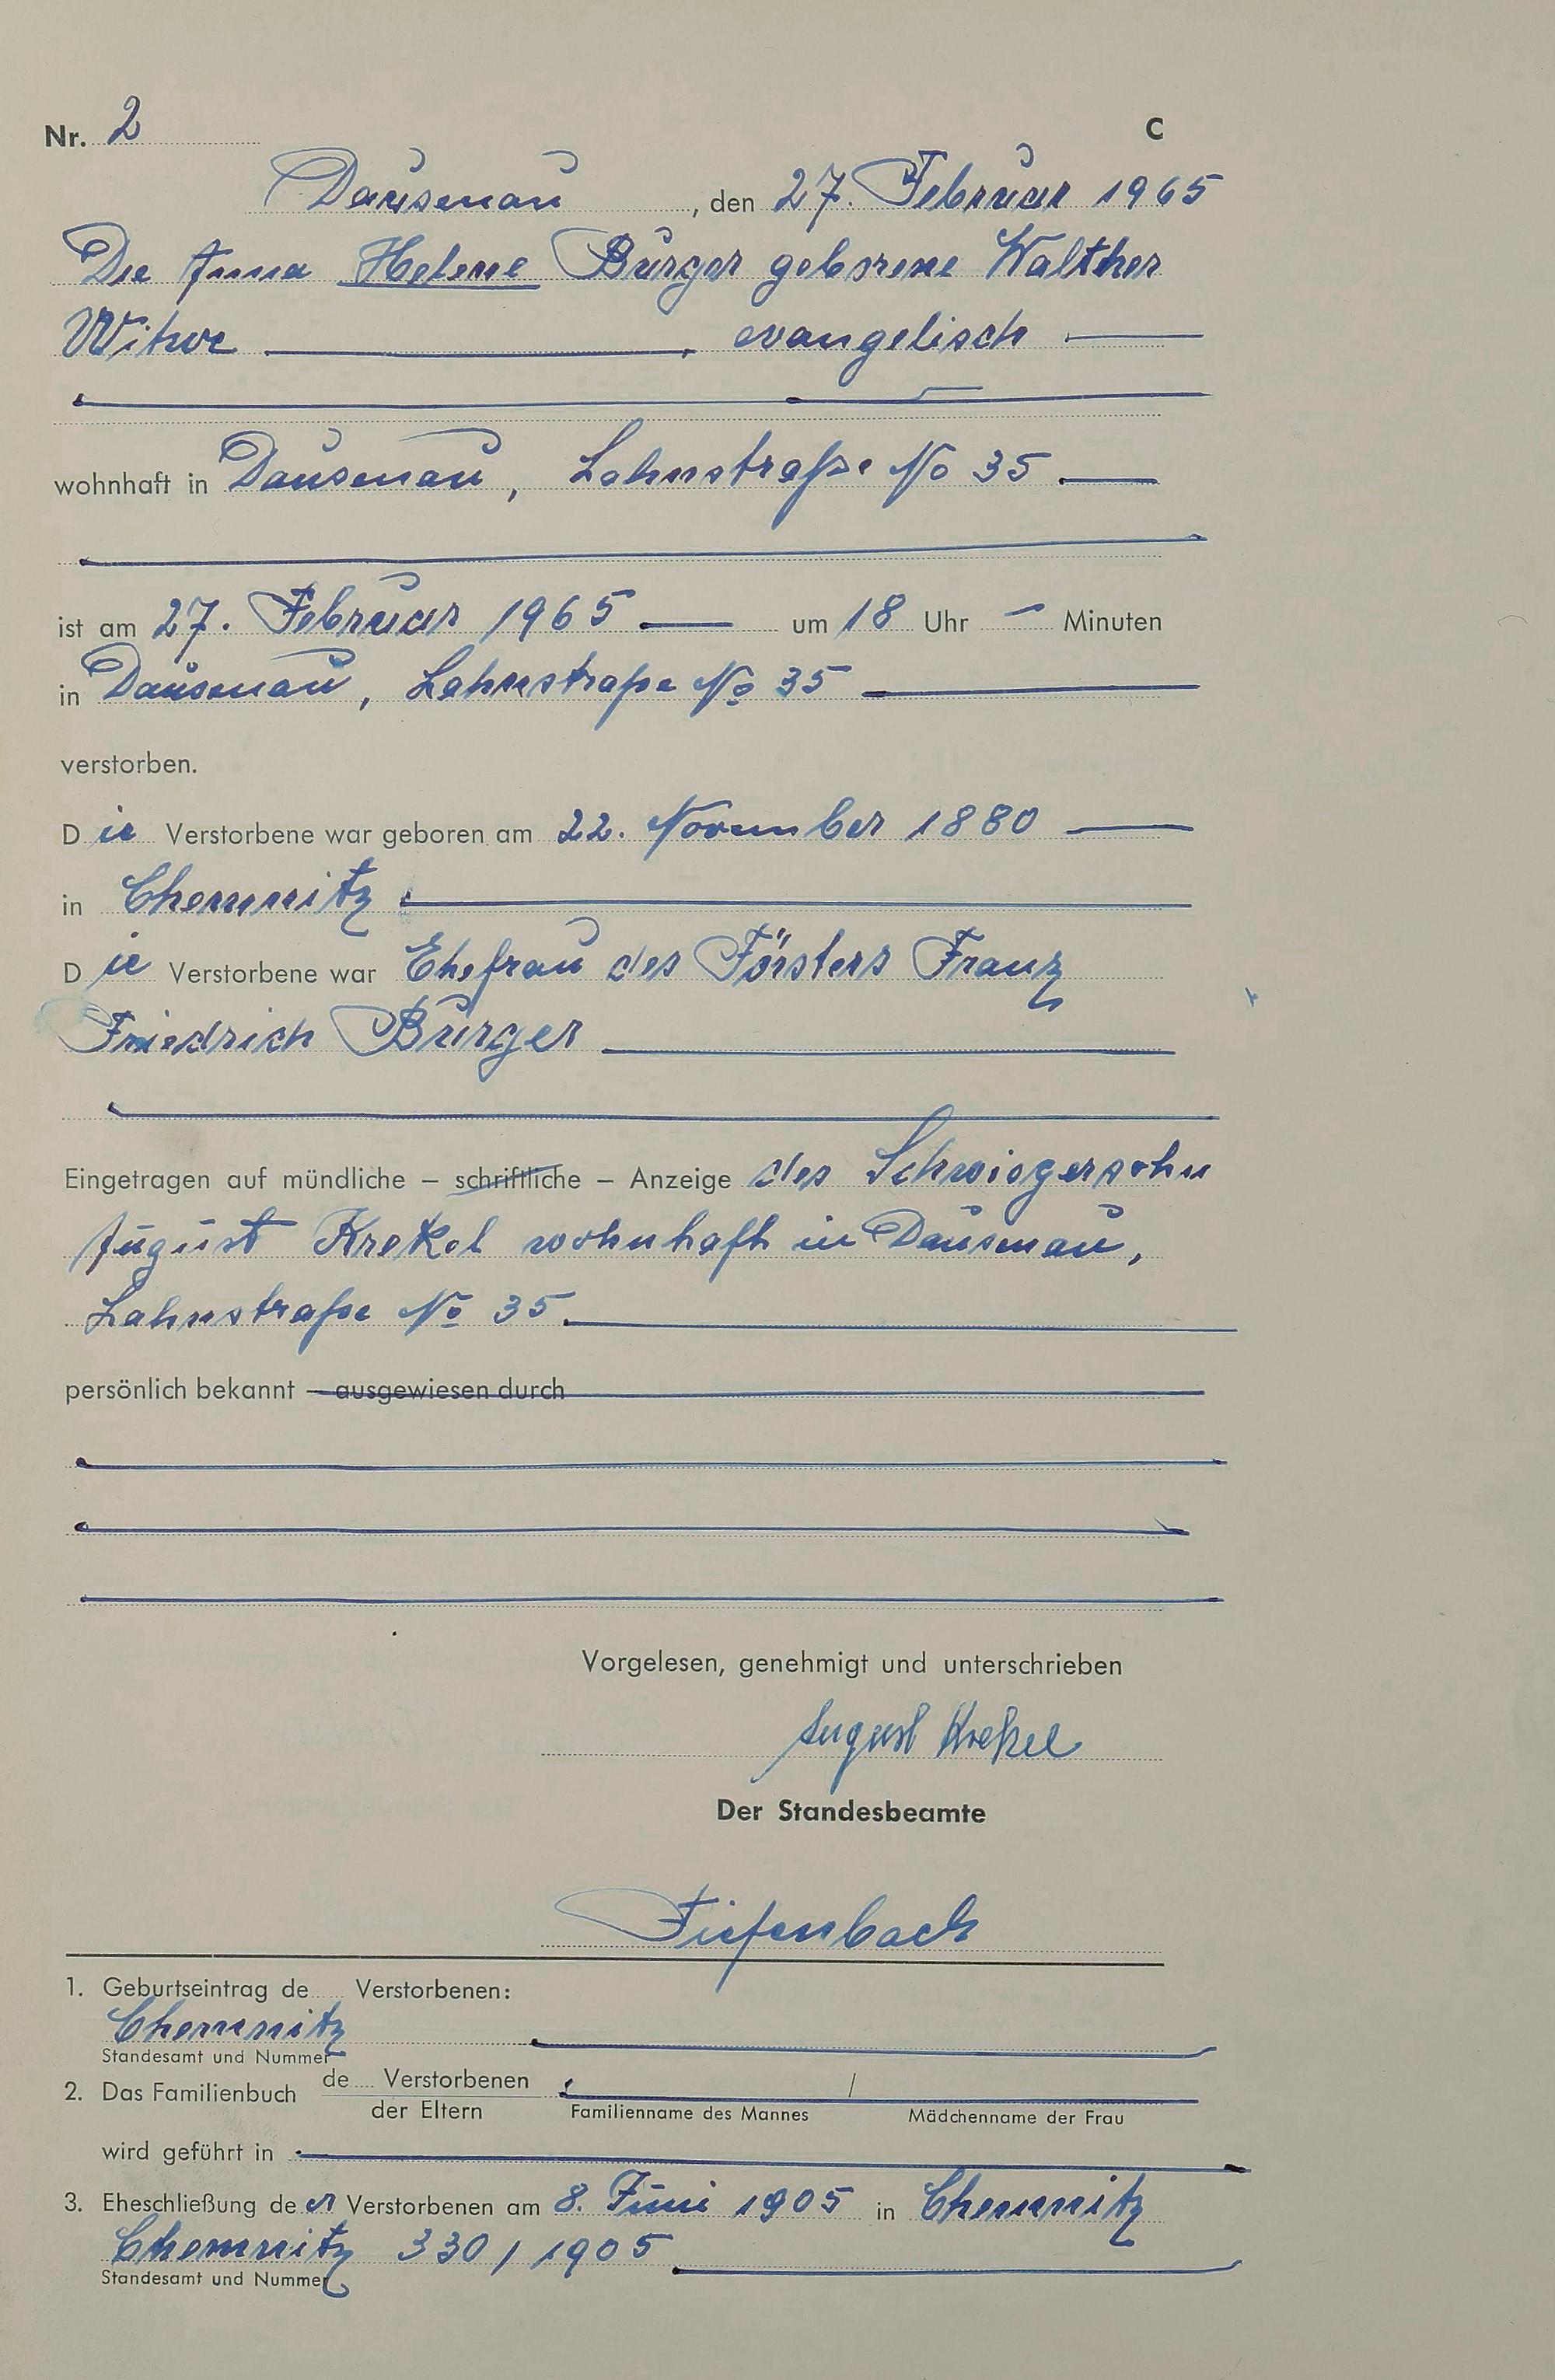 Nr. 2 C
Dausenau, den 27. Februar 1965
Die Anna Helene Burger geborene Walther
Witwe, evangelisch
wohnhaft in Dausenau, Lahnstraße No 35
ist am 27. Februar 1965 um 18 Uhr — Minuten
in Dausenau, Lahnstraße No 35
verstorben.
Die Verstorbene war geboren am 22. November 1880
in Chemnitz
Die Verstorbene war Ehefrau des Försters Franz
Friedrich Burger
Eingetragen auf mündliche – schriftliche – Anzeige des Schwiegersohn
August Krekel wohnhaft in Dausenau,
Lahnstraße No 35.
persönlich bekannt – ausgewiesen durch
Vorgelesen, genehmigt und unterschrieben
August Krekel
Der Standesbeamte
Tiefenbach
1. Geburtseintrag de Verstorbenen:
Chemnitz
Standesamt und Nummer
2. Das Familienbuch de Verstorbenen /
der Eltern Familienname des Mannes Mädchenname der Frau
wird geführt in
3. Eheschließung der Verstorbenen am 8. Juni 1905 in Chemnitz
Chemnitz 330/1905
Standesamt und Nummer